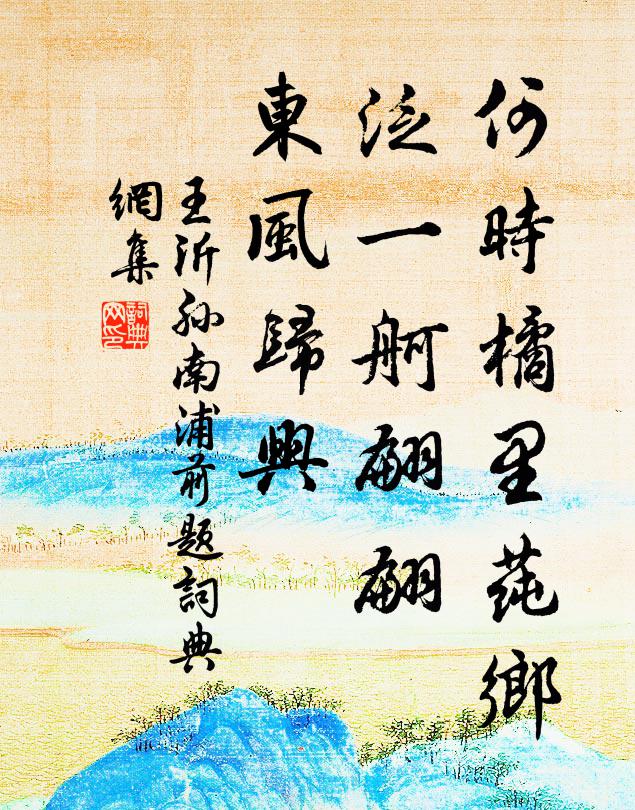 何時橘里蓴鄉
泛一舸翩翩
東風歸興
王沂孫南浦前題詞典
網集
詞典
网印